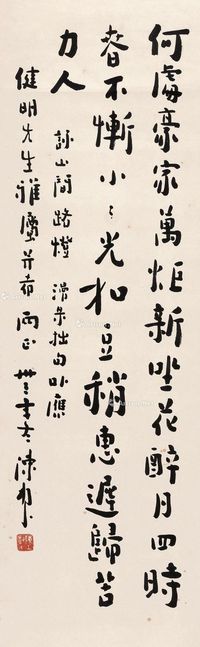 何處豪家萬炬新坐花醉月四時
春不慚小小光如豆稍惠遲歸苦
力人
詠山間路燈 滌弟拙句以應
健明先生雅屬并希 兩正